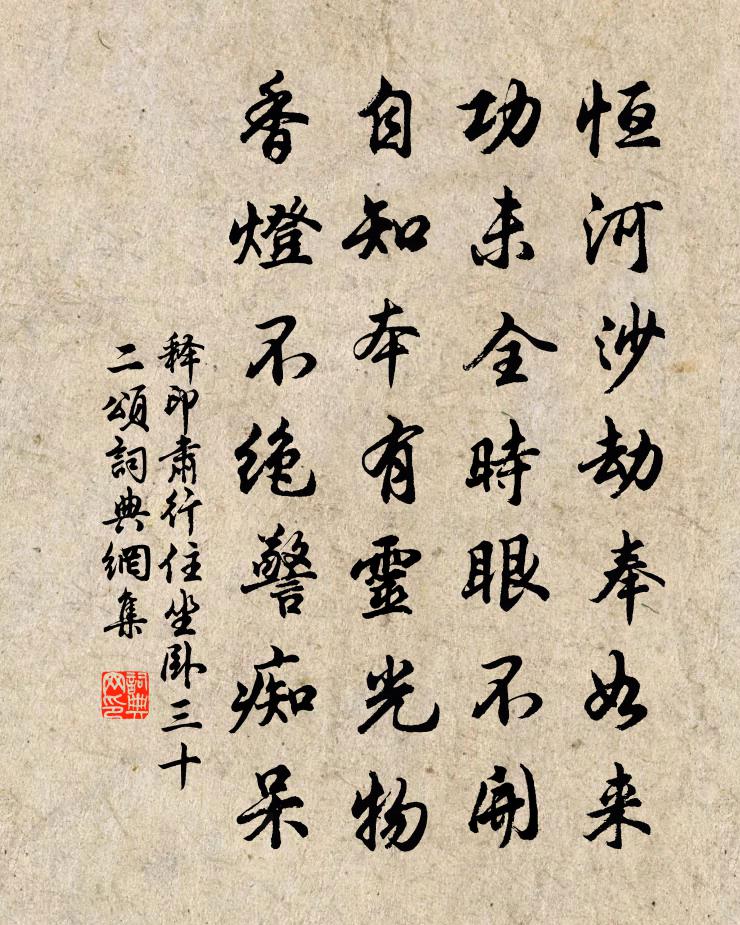 恒河沙劫奉如来
功未全時眼不開
自知本有靈光物
香燈不绝警痴呆
释印肅行住坐卧三十
二頌詞典網集
詞典
网印